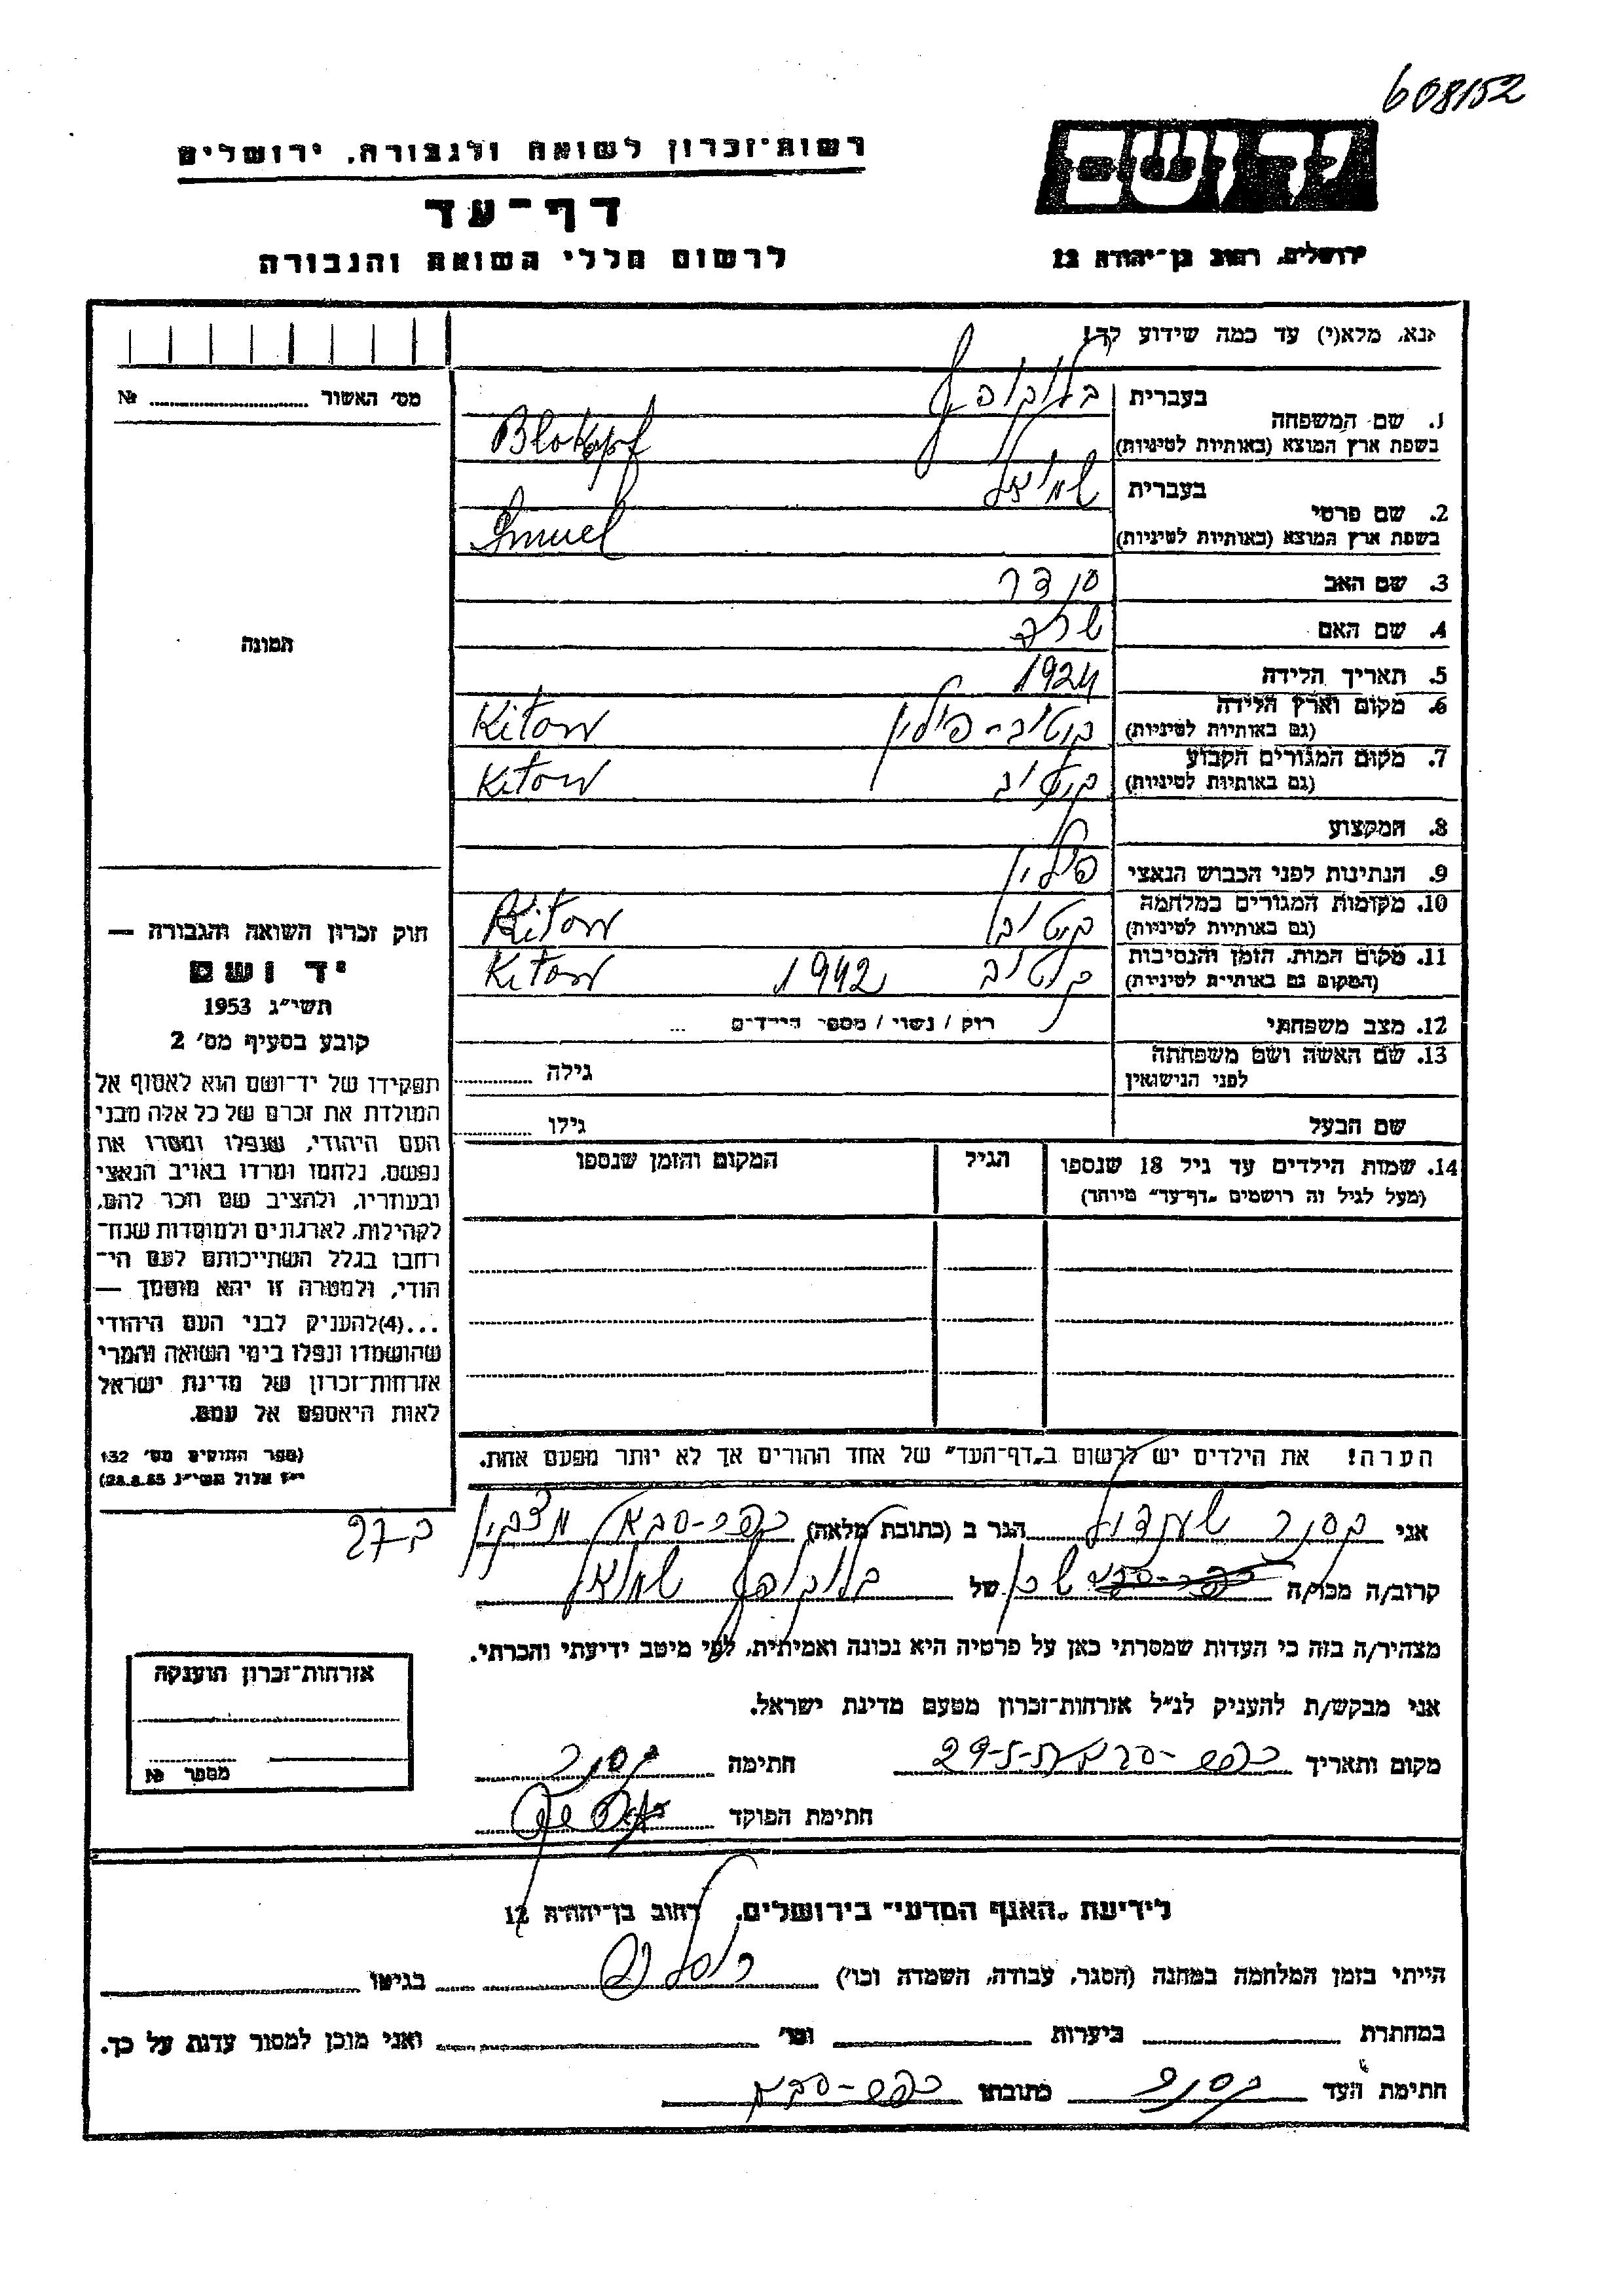 608152
רשות-זכרון לשואה ולגבורה, ירושלים
יד ושם
דף-עד
לרשום חללי השואה והגבורה
ירושלים, רחוב בן-יהודה 12
נא, מלא(י) עד כמה שידוע לך!
מס׳ האשור ........ №
1. שם המשפחה
בעברית בלוקופף
בשפת ארץ המוצא (באותיות לטיניות) Blokopf
2. שם פרטי
בעברית שמואל
בשפת ארץ המוצא (באותיות לטיניות) Smuel
3. שם האב סנדר
4. שם האם שרה
תמונה
5. תאריך הלידה 1924
6. מקום וארץ הלידה
(גם באותיות לטיניות) קיטוב-פולין Kitow
7. מקום המגורים הקבוע
(גם באותיות לטיניות) קיטוב Kitow
8. המקצוע
9. הנתינות לפני הכבוש הנאצי פולין
10. מקומות המגורים במלחמה
(גם באותיות לטיניות) קיטוב Kitow
11. מקום המות, הזמן והנסיבות
(המקום גם באותיות לטיניות) קיטוב 1942 Kitow
12. מצב משפחתי רוק / נשוי / מספר הילדים ...
13. שם האשה ושם משפחתה
לפני הנישואין גילה ........
שם הבעל גילו ........
14. שמות הילדים עד גיל 18 שנספו הגיל המקום והזמן שנספו
(מעל לגיל זה רושמים „דף-עד״ מיוחד)
חוק זכרון השואה והגבורה —
יד ושם
תשי״ג 1953
קובע בסעיף מס׳ 2
תפקידו של יד-ושם הוא לאסוף אל
המולדת את זכרם של כל אלה מבני
העם היהודי, שנפלו ומסרו את
נפשם, נלחמו ומרדו באויב הנאצי
ובעוזריו, ולהציב שם וזכר להם,
לקהילות, לארגונים ולמוסדות שנח-
רחבו בגלל השתייכותם לעם הי-
הודי, ולמטרה זו יהא מוסמך —
...(4)להעניק לבני העם היהודי
שהושמדו ונפלו בימי השואה והמרי
אזרחות-זכרון של מדינת ישראל
לאות היאספם אל עמם.
(ספר החוקים מס׳ 132
י״ז אלול תשי״ג 28.8.53)
הערה! את הילדים יש לרשום ב„דף-העד״ של אחד ההורים אך לא יותר מפעם אחת.
אני הגר ב (כתובת מלאה) כפר-סבא
קרוב/ה מכר/ה שכן של בלוקופף שמואל
מצהיר/ה בזה כי העדות שמסרתי כאן על פרטיה היא נכונה ואמיתית, לפי מיטב ידיעתי והכרתי.
אני מבקש/ת להעניק לנ״ל אזרחות-זכרון מטעם מדינת ישראל.
מקום ותאריך כפר-סבא חתימה
חתימת הפוקד
אזרחות-זכרון הוענקה
מספר №
לידיעת „האגף המדעי״ בירושלים, רחוב בן-יהודה 12
הייתי בזמן המלחמה במחנה (הסגר, עבודה, השמדה וכו׳) בגיטו
במחתרת ביערות וכו׳ ואני מוכן למסור עדות על כך.
חתימת העד כתובתו כפר-סבא